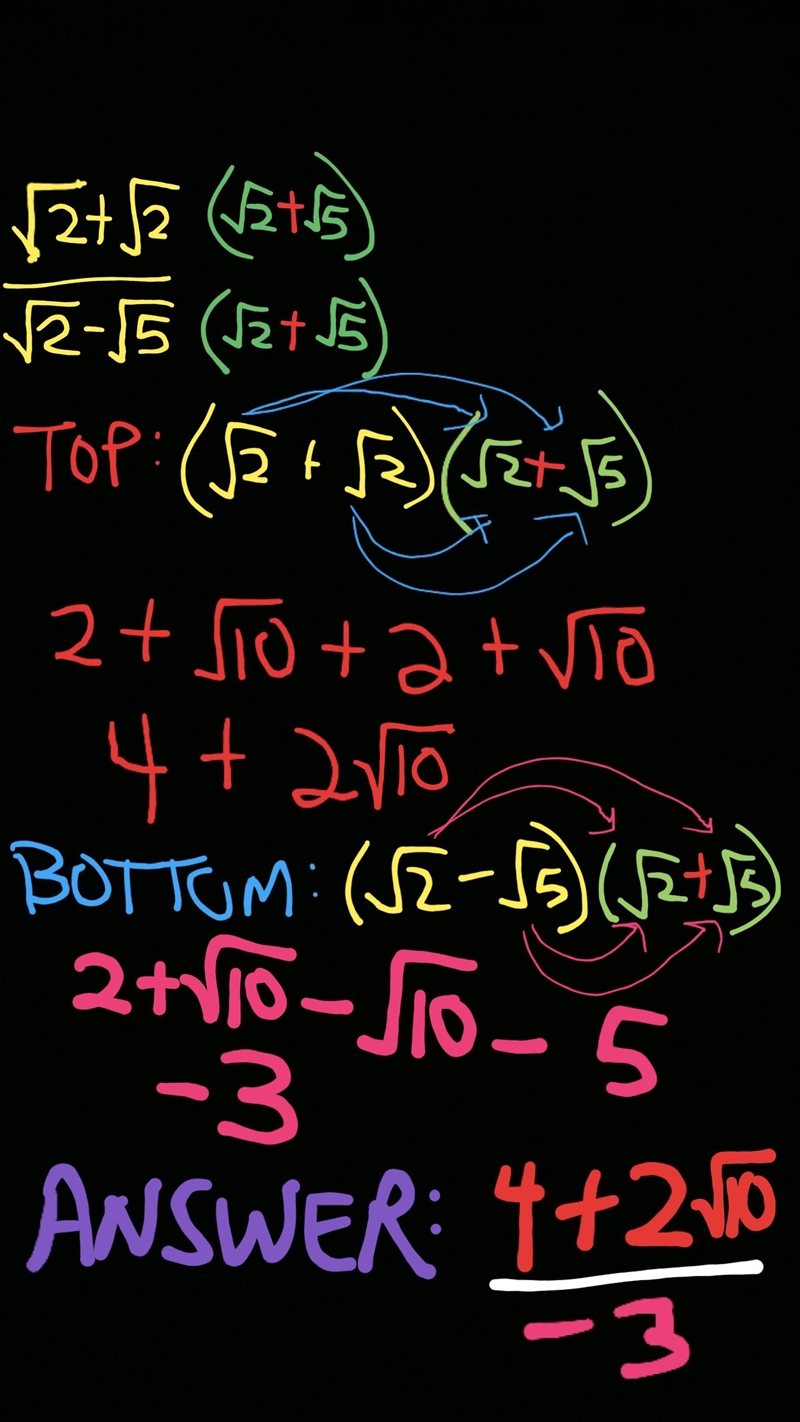 √2+√2 (√2+√5)
√2-√5 (√2+√5)
TOP: (√2 + √2)(√2+√5)
2+√10+2+√10
4+2√10
BOTTOM: (√2-√5)(√2+√5)
2+√10-√10-5
-3
ANSWER: 4+2√10
-3